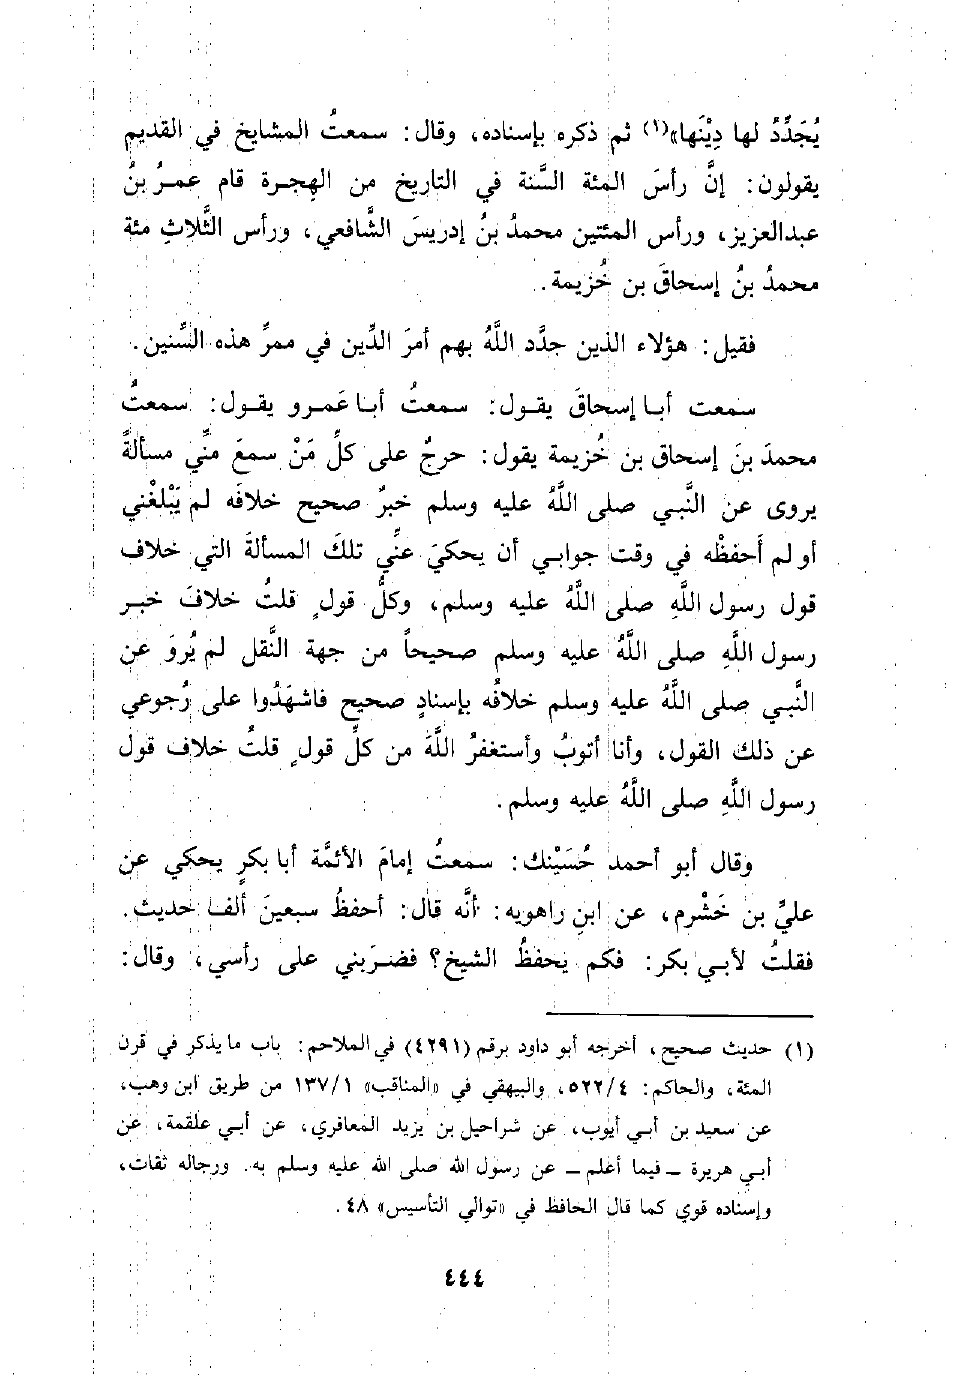 يُجَدِّدُ لها دِيْنَها»(١) ثم ذكره بإسناده، وقال: سمعتُ المشايخ في القديم
يقولون: إنَّ رأسَ المئة السَّنة في التاريخ من الهِجرة قام عمرُ بنُ
عبدالعزيز، ورأس المئتين محمدُ بنُ إدريسَ الشَّافعي، ورأس الثَّلاثِ مئة
محمدُ بنُ إسحاقَ بن خُزيمة.
فقيل: هؤلاء الذين جدَّد اللَّهُ بهم أمرَ الدِّين في ممرِّ هذه السِّنين.
سمعت أبا إسحاقَ يقول: سمعتُ أبا عَمرو يقول: سمعتُ
محمدَ بنَ إسحاق بن خُزيمة يقول: حرجٌ على كلِّ مَنْ سمعَ منِّي مسألةً
يروى عن النَّبي صلى اللَّهُ عليه وسلم خبرٌ صحيح خلافَه لم يَبْلغْني
أو لم أَحفظْه في وقت جوابي أن يحكيَ عنِّي تلكَ المسألةَ التي خلاف
قول رسول اللَّهِ صلى اللَّهُ عليه وسلم، وكلُّ قولٍ قلتُ خلافَ خبر
رسول اللَّهِ صلى اللَّهُ عليه وسلم صحيحاً من جهة النَّقل لم يُروَ عن
النَّبي صلى اللَّهُ عليه وسلم خلافُه بإسنادٍ صحيح فاشهَدُوا على رُجوعي
عن ذلك القول، وأنا أتوبُ وأستغفرُ اللَّهَ من كلِّ قولٍ قلتُ خلاف قول
رسول اللَّهِ صلى اللَّهُ عليه وسلم.
وقال أبو أحمد حُسَيْنك: سمعتُ إمامَ الأئمَّة أبا بكرٍ يحكي عن
عليِّ بن خَشْرم، عن ابنِ راهويه: أنَّه قال: أحفظُ سبعينَ ألفَ حديث.
فقلتُ لأبي بكر: فكم يحفظُ الشيخ؟ فضرَبني على رأسي، وقال:
(١) حديث صحيح، أخرجه أبو داود برقم (٤٢٩١) في الملاحم: باب ما يذكر في قرن
المئة، والحاكم: ٥٢٢/٤، والبيهقي في «المناقب» ١٣٧/١ من طريق ابن وهب،
عن سعيد بن أبي أيوب، عن شراحيل بن يزيد المعافري، عن أبي علقمة، عن
أبي هريرة ــ فيما أعلم ــ عن رسول الله صلى الله عليه وسلم به. ورجاله ثقات،
وإسناده قوي كما قال الحافظ في «توالي التأسيس» ٤٨.
٤٤٤